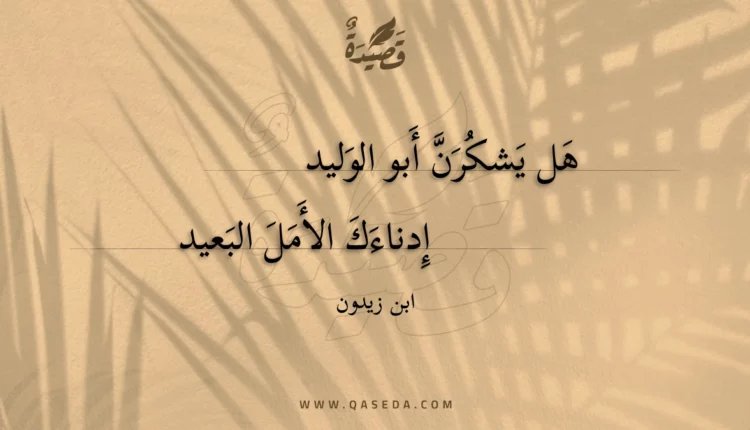 قَصِيْدَةٌ
هَل يَشكُرَنَّ أَبو الوَليد
إِدناءَكَ الأَمَلَ البَعيد
ابن زيدون
WWW.QASEDA.COM